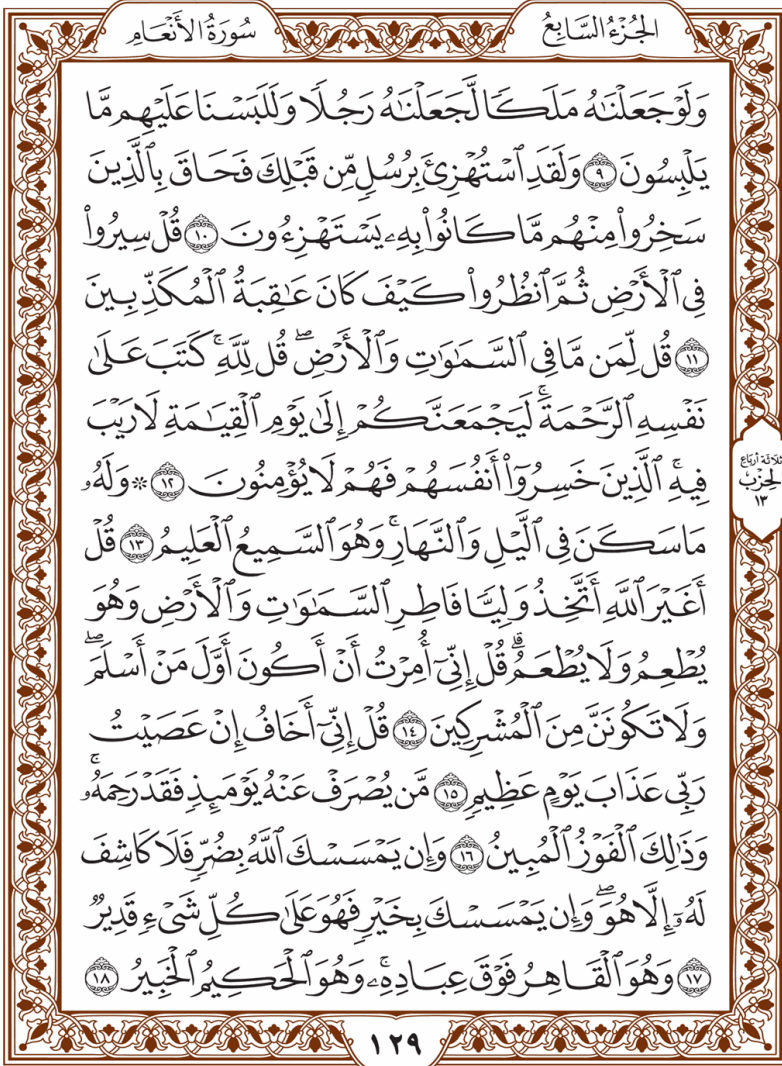 الجُزْءُ السَّابِعُ
سُورَةُ الأَنْعَامِ
وَلَوْ جَعَلْنَٰهُ مَلَكًا لَّجَعَلْنَٰهُ رَجُلًا وَلَلَبَسْنَا عَلَيْهِم مَّا
يَلْبِسُونَ ٩ وَلَقَدِ ٱسْتُهْزِئَ بِرُسُلٍ مِّن قَبْلِكَ فَحَاقَ بِٱلَّذِينَ
سَخِرُوا۟ مِنْهُم مَّا كَانُوا۟ بِهِۦ يَسْتَهْزِءُونَ ١٠ قُلْ سِيرُوا۟
فِى ٱلْأَرْضِ ثُمَّ ٱنظُرُوا۟ كَيْفَ كَانَ عَٰقِبَةُ ٱلْمُكَذِّبِينَ
١١ قُل لِّمَن مَّا فِى ٱلسَّمَٰوَٰتِ وَٱلْأَرْضِ ۖ قُل لِّلَّهِ ۚ كَتَبَ عَلَىٰ
نَفْسِهِ ٱلرَّحْمَةَ ۚ لَيَجْمَعَنَّكُمْ إِلَىٰ يَوْمِ ٱلْقِيَٰمَةِ لَا رَيْبَ
فِيهِ ۚ ٱلَّذِينَ خَسِرُوٓا۟ أَنفُسَهُمْ فَهُمْ لَا يُؤْمِنُونَ ١٢ ۞ وَلَهُۥ
مَا سَكَنَ فِى ٱلَّيْلِ وَٱلنَّهَارِ ۚ وَهُوَ ٱلسَّمِيعُ ٱلْعَلِيمُ ١٣ قُلْ
أَغَيْرَ ٱللَّهِ أَتَّخِذُ وَلِيًّا فَاطِرِ ٱلسَّمَٰوَٰتِ وَٱلْأَرْضِ وَهُوَ
يُطْعِمُ وَلَا يُطْعَمُ ۗ قُلْ إِنِّىٓ أُمِرْتُ أَنْ أَكُونَ أَوَّلَ مَنْ أَسْلَمَ ۖ
وَلَا تَكُونَنَّ مِنَ ٱلْمُشْرِكِينَ ١٤ قُلْ إِنِّىٓ أَخَافُ إِنْ عَصَيْتُ
رَبِّى عَذَابَ يَوْمٍ عَظِيمٍ ١٥ مَّن يُصْرَفْ عَنْهُ يَوْمَئِذٍ فَقَدْ رَحِمَهُۥ ۚ
وَذَٰلِكَ ٱلْفَوْزُ ٱلْمُبِينُ ١٦ وَإِن يَمْسَسْكَ ٱللَّهُ بِضُرٍّ فَلَا كَاشِفَ
لَهُۥٓ إِلَّا هُوَ ۖ وَإِن يَمْسَسْكَ بِخَيْرٍ فَهُوَ عَلَىٰ كُلِّ شَىْءٍ قَدِيرٌ
١٧ وَهُوَ ٱلْقَاهِرُ فَوْقَ عِبَادِهِۦ ۚ وَهُوَ ٱلْحَكِيمُ ٱلْخَبِيرُ ١٨
ثلاثة أرباع
الحزب
١٣
١٢٩